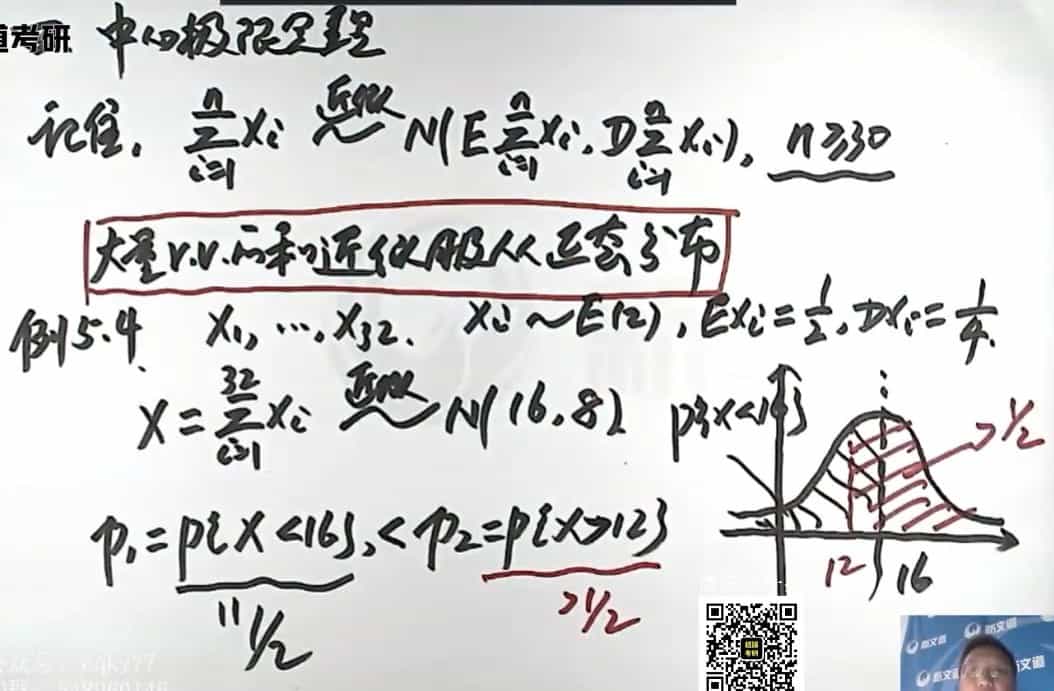 道考研
一、中心极限定理
记住, \sum_{i=1}^{n} X_i 近似~ N(E\sum_{i=1}^{n} X_i, D\sum_{i=1}^{n} X_i), n≥30
大量 r.v. 的和近似服从正态分布
例5.4 X_1, …, X_{32}. X_i ~ E(2), EX_i = 1/2, DX_i = 1/4.
X = \sum_{i=1}^{32} X_i 近似~ N(16, 8) P{X<16}
1/2
P_1 = P{X<16}, < P_2 = P{X>12}
12 16
" 1/2 >1/2
新文道
新文道
新文道